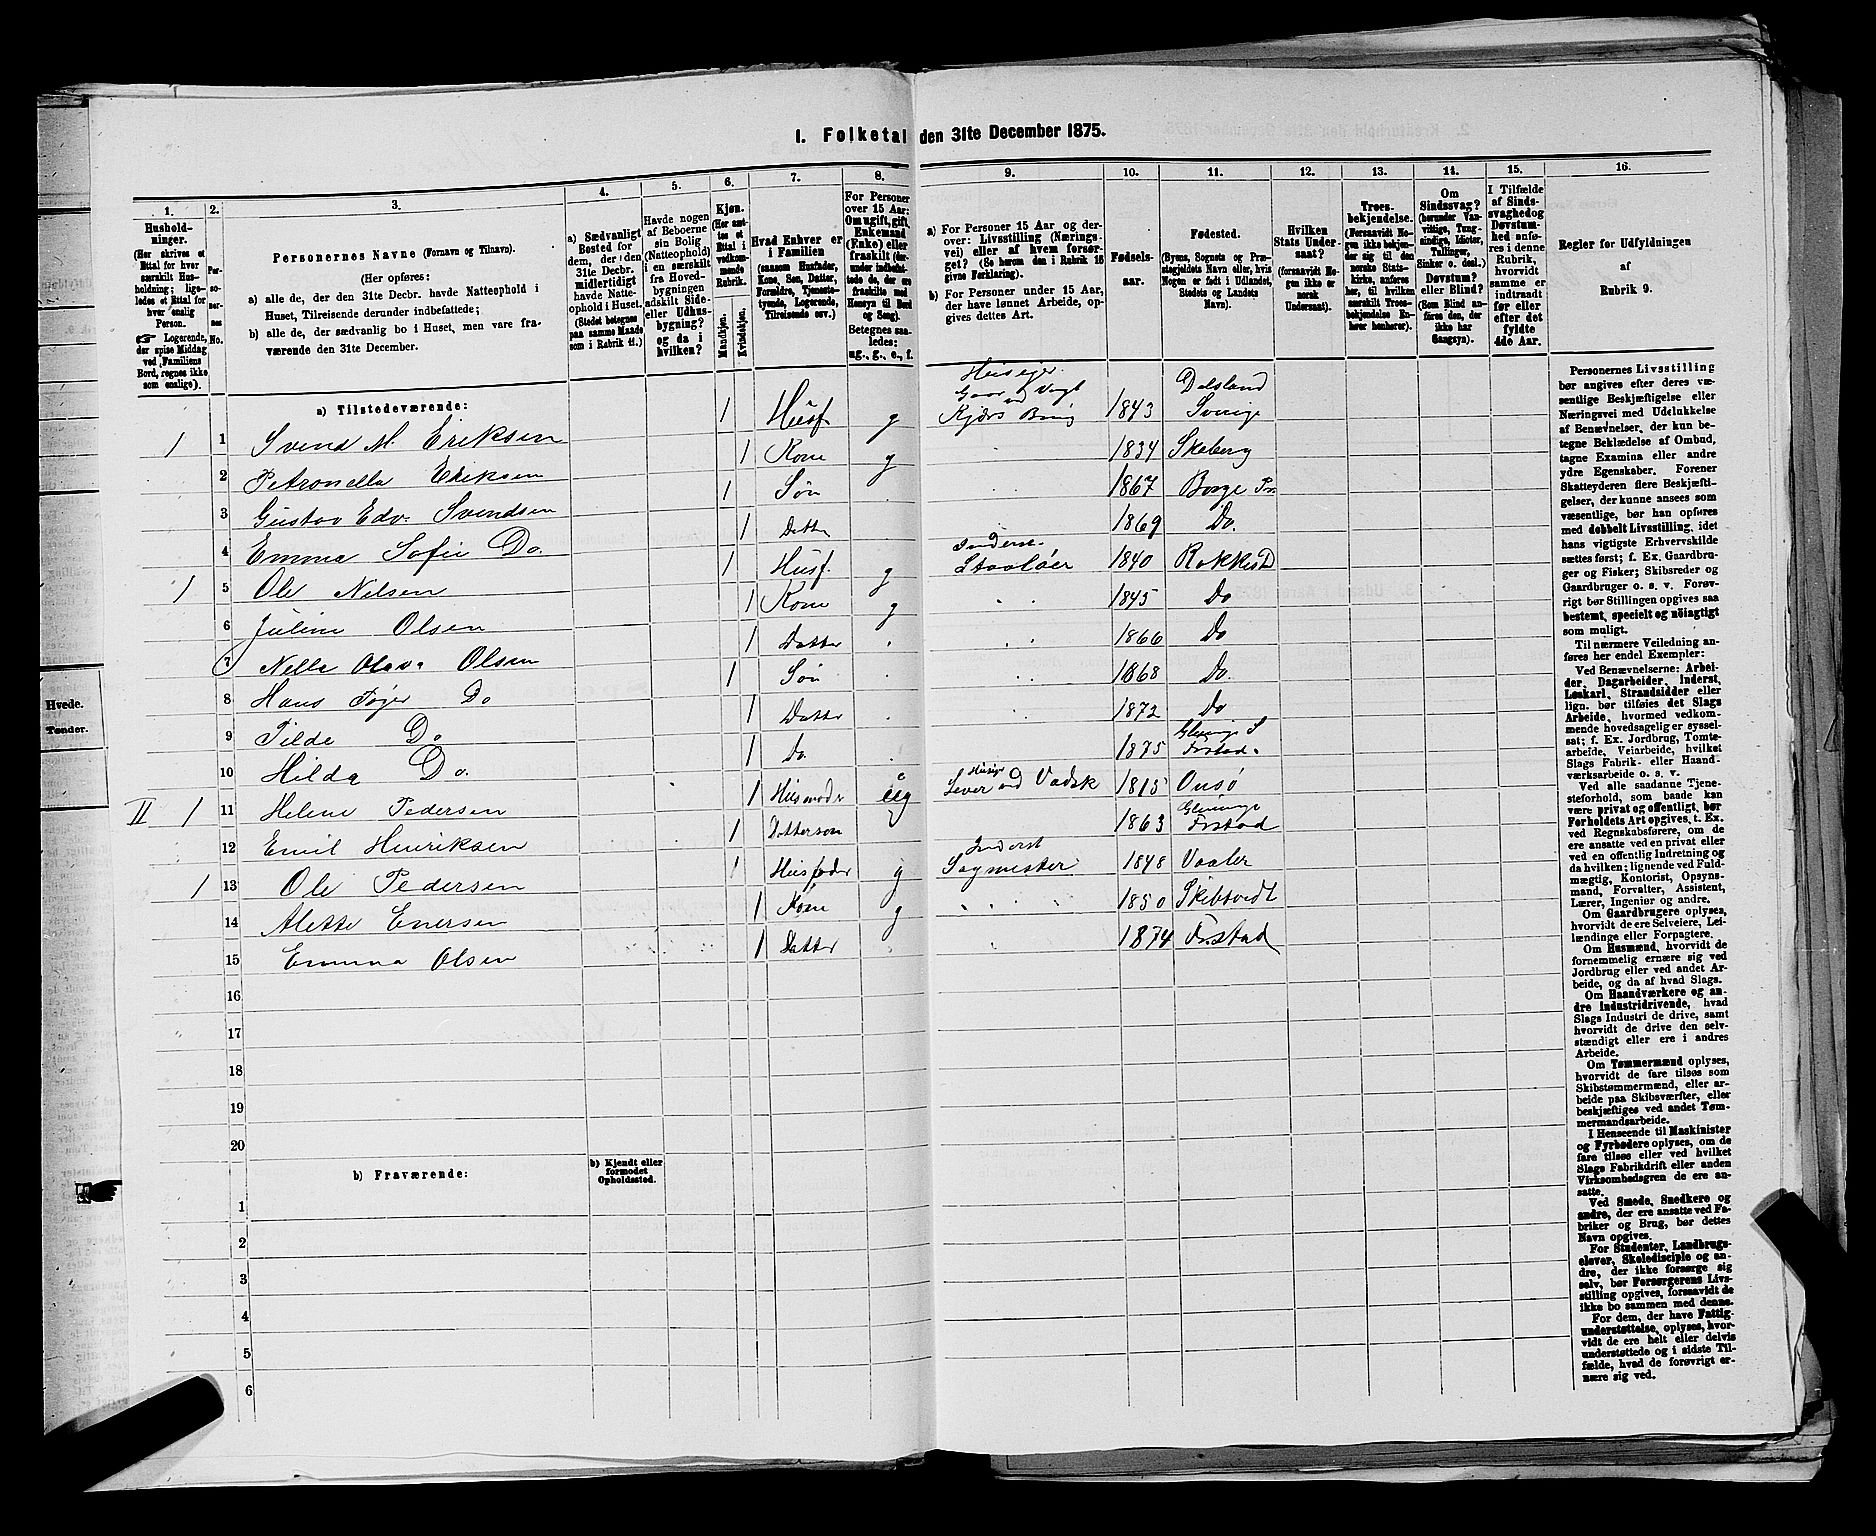 1. Folketal den 31te December 1875.
1.
2.
3.
4.
5.
6.
7.
8.
9.
10.
11.
12.
13.
14.
15.
16.
Husholdninger.
(Her skrives et Ettal for hver særskilt Husholdning; ligeledes et Ettal for hver enslig Person.
☞ Logerende, der spise Middag ved Familiens Bord, regnes ikke som enslige).
Personernes No.
Personernes Navne (Fornavn og Tilnavn).
(Her opføres:
a) alle de, der den 31te Decbr. havde Natteophold i Huset, Tilreisende derunder indbefattede;
b) alle de, der sædvanlig bo i Huset, men vare fraværende den 31te December.
a) Sædvanligt Bosted for dem, der den 31te Decbr. midlertidigt havde Natteophold i Huset. (Stedet betegnes paa samme Maade som i Rubrik 11.)
Havde nogen af Beboerne sin Bolig (Natteophold) i en særskilt fra Hovedbygningen adskilt Side- eller Udhusbygning? og da i hvilken?
Kjøn.
(Her sættes et Ettal i vedkommende Rubrik.
Mandkjøn.
Kvindekjøn.
Hvad Enhver er i Familien
(saasom Husfader, Kone, Søn, Datter, Forældre, Tjenestetyende, Logerende, Tilreisende osv.)
For Personer over 15 Aar: Om ugift, gift, Enkemand (Enke) eller fraskilt (derunder indbefattede de, der ere fraskilte med Hensyn til Bord og Seng).
Betegnes saaledes:
ug., g., e., f.
a) For Personer 15 Aar og derover: Livsstilling (Næringsvei) eller af hvem forsørget? (Se herom den i Rubrik 16 givne Forklaring).
b) For Personer under 15 Aar, der have lønnet Arbeide, opgives dettes Art.
Fødselsaar.
Fødested.
(Byens, Sognets og Præstegjeldets Navn eller, hvis Nogen er født i Udlandet, Stedets og Landets Navn).
Hvilken Stats Undersaat?
(forsaavidt Nogen ikke er norsk Undersaat).
Troesbekjendelse.
(Forsaavidt Nogen ikke bekjender sig til den norske Statskirke, anføres her, til hvilken særskilt Troesbekjendelse Enhver henhører).
Om Sindssvag? (herunder Vanvittige, Tungsindige, Idioter, Tullinger, Sinker o. desl.) Døvstum? eller Blind? (Som Blind anføres den, der ikke har Gangsyn).
I Tilfælde af Sindssvaghed og Døvstumhed anføres i denne Rubrik, hvorvidt samme er indtraadt før eller efter det fyldte 4de Aar.
Regler for Udfyldningen
af
Rubrik 9.
a) Tilstedeværende:
1 1 Svend M. Eriksen 1 Husf g Huseier. Gaardvogt Kjærs Brug 1843 Dalsland Sverige
2 Petronella Eriksen 1 Kone g 1834 Skeberg
3 Gustav Edv. Svendsen 1 Søn 1867 Borge Pr.
4 Emma Sofie Do. 1 Datter 1869 Do.
1 5 Ole Nelsen 1 Husf. g Inderst. 1840 Rokkestd
6 Juline Olsen 1 Kone g 1845 Do
7 Nella Olava Olsen 1 Datter 1866 Do
8 Hans Do 1 Søn 1868 Do.
9 Tilde Do 1 Datter 1872 Do
10 Hilda Do. 1 Do. 1875 Glemminge S Frstad.
II 1 11 Helene Pedersen 1 Husmoder ug Huseier Lever ved Vadsk 1815 Onsø
12 Emil Henriksen 1 Datterson 1863 Glemminge Frstad
1 13 Ole Pedersen 1 Husfader g Inderst Sagmester 1848 Vaaler
14 Alette Enersen 1 Kone g 1850 Skibtvedt
15 Emma Olsen 1 Datter 1874 Frstad
16
17
18
19
20
b) Fraværende:
b) Kjendt eller formodet Opholdssted.
1
2
3
4
5
6
Personernes Livsstilling
bør angives efter deres væ-
sentlige Beskjæftigelse eller
Næringsvei med Udelukkelse
af Benævnelser, der kun be-
tegne Beklædelse af Ombud,
tagne Examina eller andre
ydre Egenskaber. Forener
Skatteyderen flere Beskjæfti-
gelser, der kunne ansees som
væsentlige, bør han opføres
med dobbelt Livsstilling, idet
hans vigtigste Erhvervskilde
sættes først; f. Ex. Gaardbru-
ger og Fisker; Skibsreder og
Gaardbruger o. s. v. Forøv-
rigt bør Stillingen opgives saa
bestemt, specielt og nöiagtigt
som muligt.
Til nærmere Veiledning an-
føres her endel Exempler:
Ved Benævnelserne: Arbei-
der, Dagarbeider, Inderst,
Løskarl, Strandsidder eller
lign. bør tilføies det Slags
Arbeide, hvormed vedkom-
mende hovedsagelig er syssel-
sat; f. Ex. Jordbrug, Tomte-
arbeide, Veiarbeide, hvilket
Slags Fabrik- eller Haand-
værksarbeide o. s. v.
Ved alle saadanne Tjene-
steforhold, som baade kan
være privat og offentligt, bør
Forholdets Art opgives, t. Ex.
ved Regnskabsførere, om de
ere ansatte ved en privat eller
ved en offentlig Indretning og
da hvilken; lignende ved Fuld-
mægtig, Kontorist, Opsyns-
mand, Forvalter, Assistent,
Lærer, Ingeniør og andre.
Om Gaardbrugere oplyses,
hvorvidt de ere Selveiere, Lei-
lændinge eller Forpagtere.
Om Husmænd, hvorvidt de
fornemmelig ernære sig ved
Jordbrug eller ved andet Ar-
beide, og da af hvad Slags.
Om Haandværkere og an-
dre Industridrivende, hvad
Slags Industri de drive, samt
hvorvidt de drive den selv-
stændigt eller ere i andres
Arbeide.
Om Tømmermænd oplyses,
hvorvidt de fare tilsøs som
Skibstømmermænd, eller ar-
beide paa Skibsværfter, eller
beskjæftiges ved andet Tøm-
mermandsarbeide.
I Henseende til Maskinister
og Fyrbødere oplyses, om de
fare tilsøs eller ved hvilket
Slags Fabrikdrift eller anden
Virksombedsgren de ere an-
satte.
Ved Smede, Snedkere og
andre, der ere ansatte ved Fa-
briker og Brug, bør dettes
Navn opgives.
For Studenter, Landbrugs-
elever, Skoledisciple og an-
dre, der ikke forsørge sig
selv, bør Forsørgerens Livs-
stilling opgives, forsaavidt de
ikke bo sammen med denne.
For dem, der have Fattig-
understøttelse, oplyses, hvor-
vidt de ere helt eller delvis
understøttede og i sidste Til-
fælde, hvad de forøvrigt er-
nære sig ved.
Hvede.
Tønder.